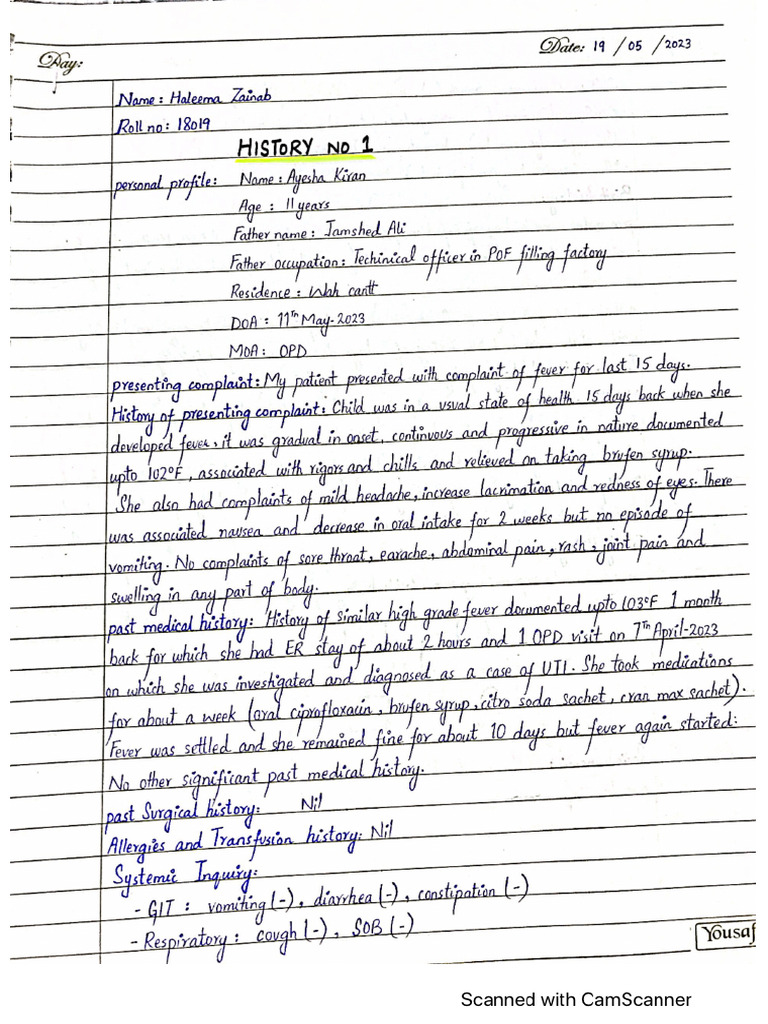 Day:
Date: 19 / 05 / 2023
Name : Haleema Zainab
Roll no : 18019
HISTORY NO 1
personal profile: Name : Ayesha Kiran
Age : 11 years
Father name : Jamshed Ali
Father occupation : Techinical officer in POF filling factory
Residence : Wah cantt
DOA : 11th May-2023
MOA: OPD
presenting complaint: My patient presented with complaint of fever for last 15 days.
History of presenting complaint: Child was in a usual state of health 15 days back when she
developed fever, it was gradual in onset, continuous and progressive in nature documented
upto 102°F, associated with rigors and chills and relieved on taking brufen syrup.
She also had complaints of mild headache, increase lacrimation and redness of eyes. There
was associated nausea and decrease in oral intake for 2 weeks but no episode of
vomiting. No complaints of sore throat, earache, abdominal pain, rash, joint pain and
swelling in any part of body.
past medical history: History of similar high grade fever documented upto 103°F 1 month
back for which she had ER stay of about 2 hours and 1 OPD visit on 7th April-2023
on which she was investigated and diagnosed as a case of UTI. She took medications
for about a week (oral ciprofloxacin, brufen syrup, citro soda sachet, cran max sachet).
Fever was settled and she remained fine for about 10 days but fever again started:
No other significant past medical history.
past Surgical history: Nil
Allergies and Transfusion history: Nil
Systemic Inquiry:
- GIT : vomiting (-), diarrhea (-), constipation (-)
- Respiratory : cough (-), SOB (-)
Yousaf
Scanned with CamScanner